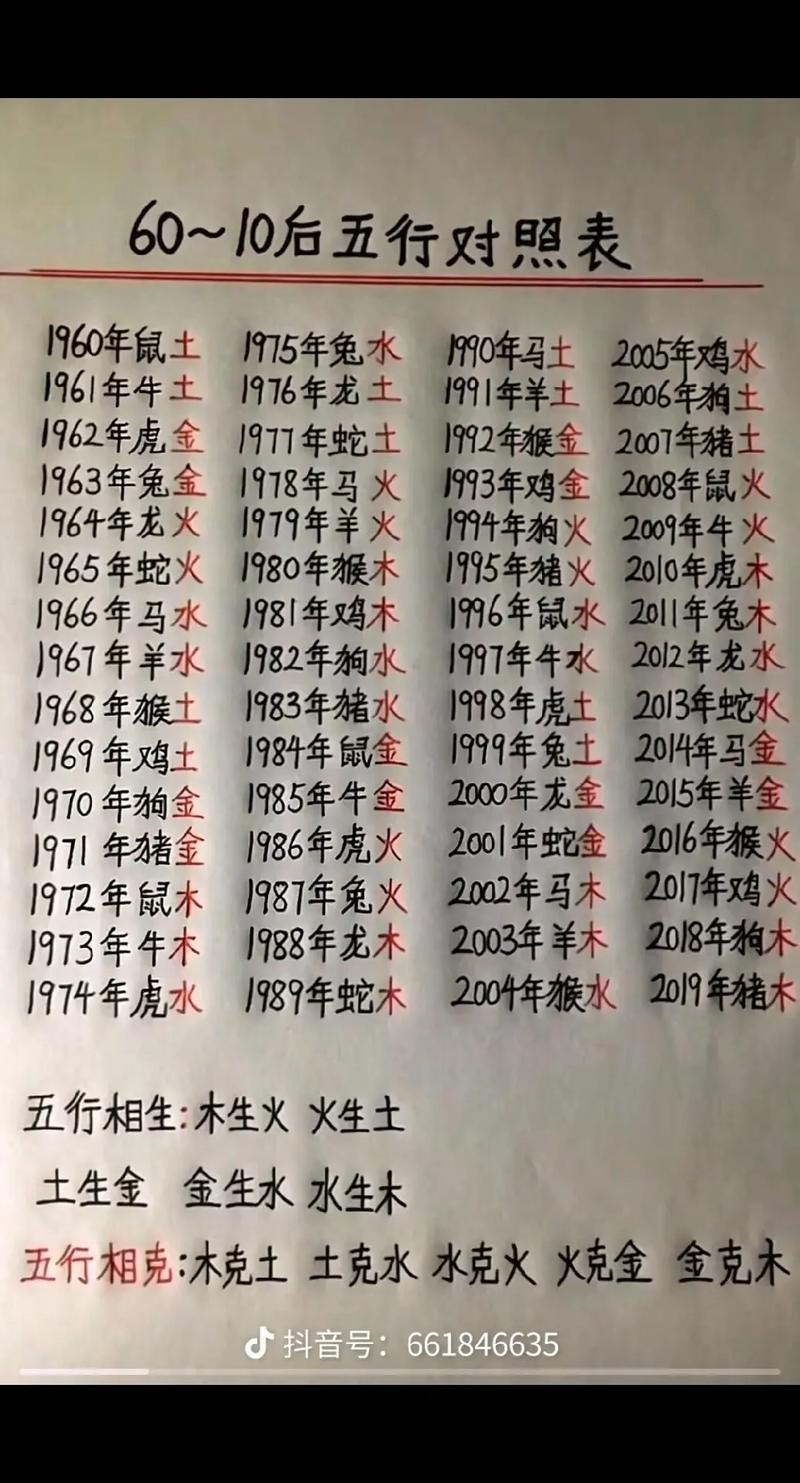 60~10后五行对照表
1960年鼠土 1975年兔水 1990年马土 2005年鸡水
1961年牛土 1976年龙土 1991年羊土 2006年狗土
1962年虎金 1977年蛇土 1992年猴金 2007年猪土
1963年兔金 1978年马火 1993年鸡金 2008年鼠火
1964年龙火 1979年羊火 1994年狗火 2009年牛火
1965年蛇火 1980年猴木 1995年猪火 2010年虎木
1966年马水 1981年鸡木 1996年鼠水 2011年兔木
1967年羊水 1982年狗水 1997年牛水 2012年龙水
1968年猴土 1983年猪水 1998年虎土 2013年蛇水
1969年鸡土 1984年鼠金 1999年兔土 2014年马金
1970年狗金 1985年牛金 2000年龙金 2015年羊金
1971年猪金 1986年虎火 2001年蛇金 2016年猴火
1972年鼠木 1987年兔火 2002年马木 2017年鸡火
1973年牛木 1988年龙木 2003年羊木 2018年狗木
1974年虎水 1989年蛇木 2004年猴水 2019年猪木
五行相生:木生火 火生土
土生金 金生水 水生木
五行相克:木克土 土克水 水克火 火克金 金克木
抖音号：661846635